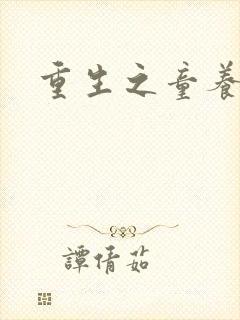 重生之童養
譚倩茹